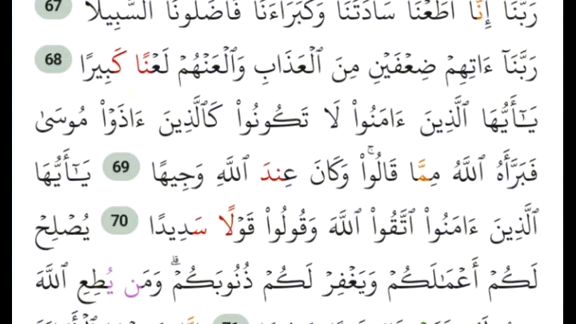 رَبَّنَآ إِنَّآ أَطَعْنَا سَادَتَنَا وَكُبَرَآءَنَا فَأَضَلُّونَا ٱلسَّبِيلَا۠ 67
رَبَّنَآ ءَاتِهِمْ ضِعْفَيْنِ مِنَ ٱلْعَذَابِ وَٱلْعَنْهُمْ لَعْنًا كَبِيرًا 68
يَـٰٓأَيُّهَا ٱلَّذِينَ ءَامَنُوا۟ لَا تَكُونُوا۟ كَٱلَّذِينَ ءَاذَوْا۟ مُوسَىٰ
فَبَرَّأَهُ ٱللَّهُ مِمَّا قَالُوا۟ۚ وَكَانَ عِندَ ٱللَّهِ وَجِيهًا 69 يَـٰٓأَيُّهَا
ٱلَّذِينَ ءَامَنُوا۟ ٱتَّقُوا۟ ٱللَّهَ وَقُولُوا۟ قَوْلًا سَدِيدًا 70 يُصْلِحْ
لَكُمْ أَعْمَـٰلَكُمْ وَيَغْفِرْ لَكُمْ ذُنُوبَكُمْۗ وَمَن يُطِعِ ٱللَّهَ